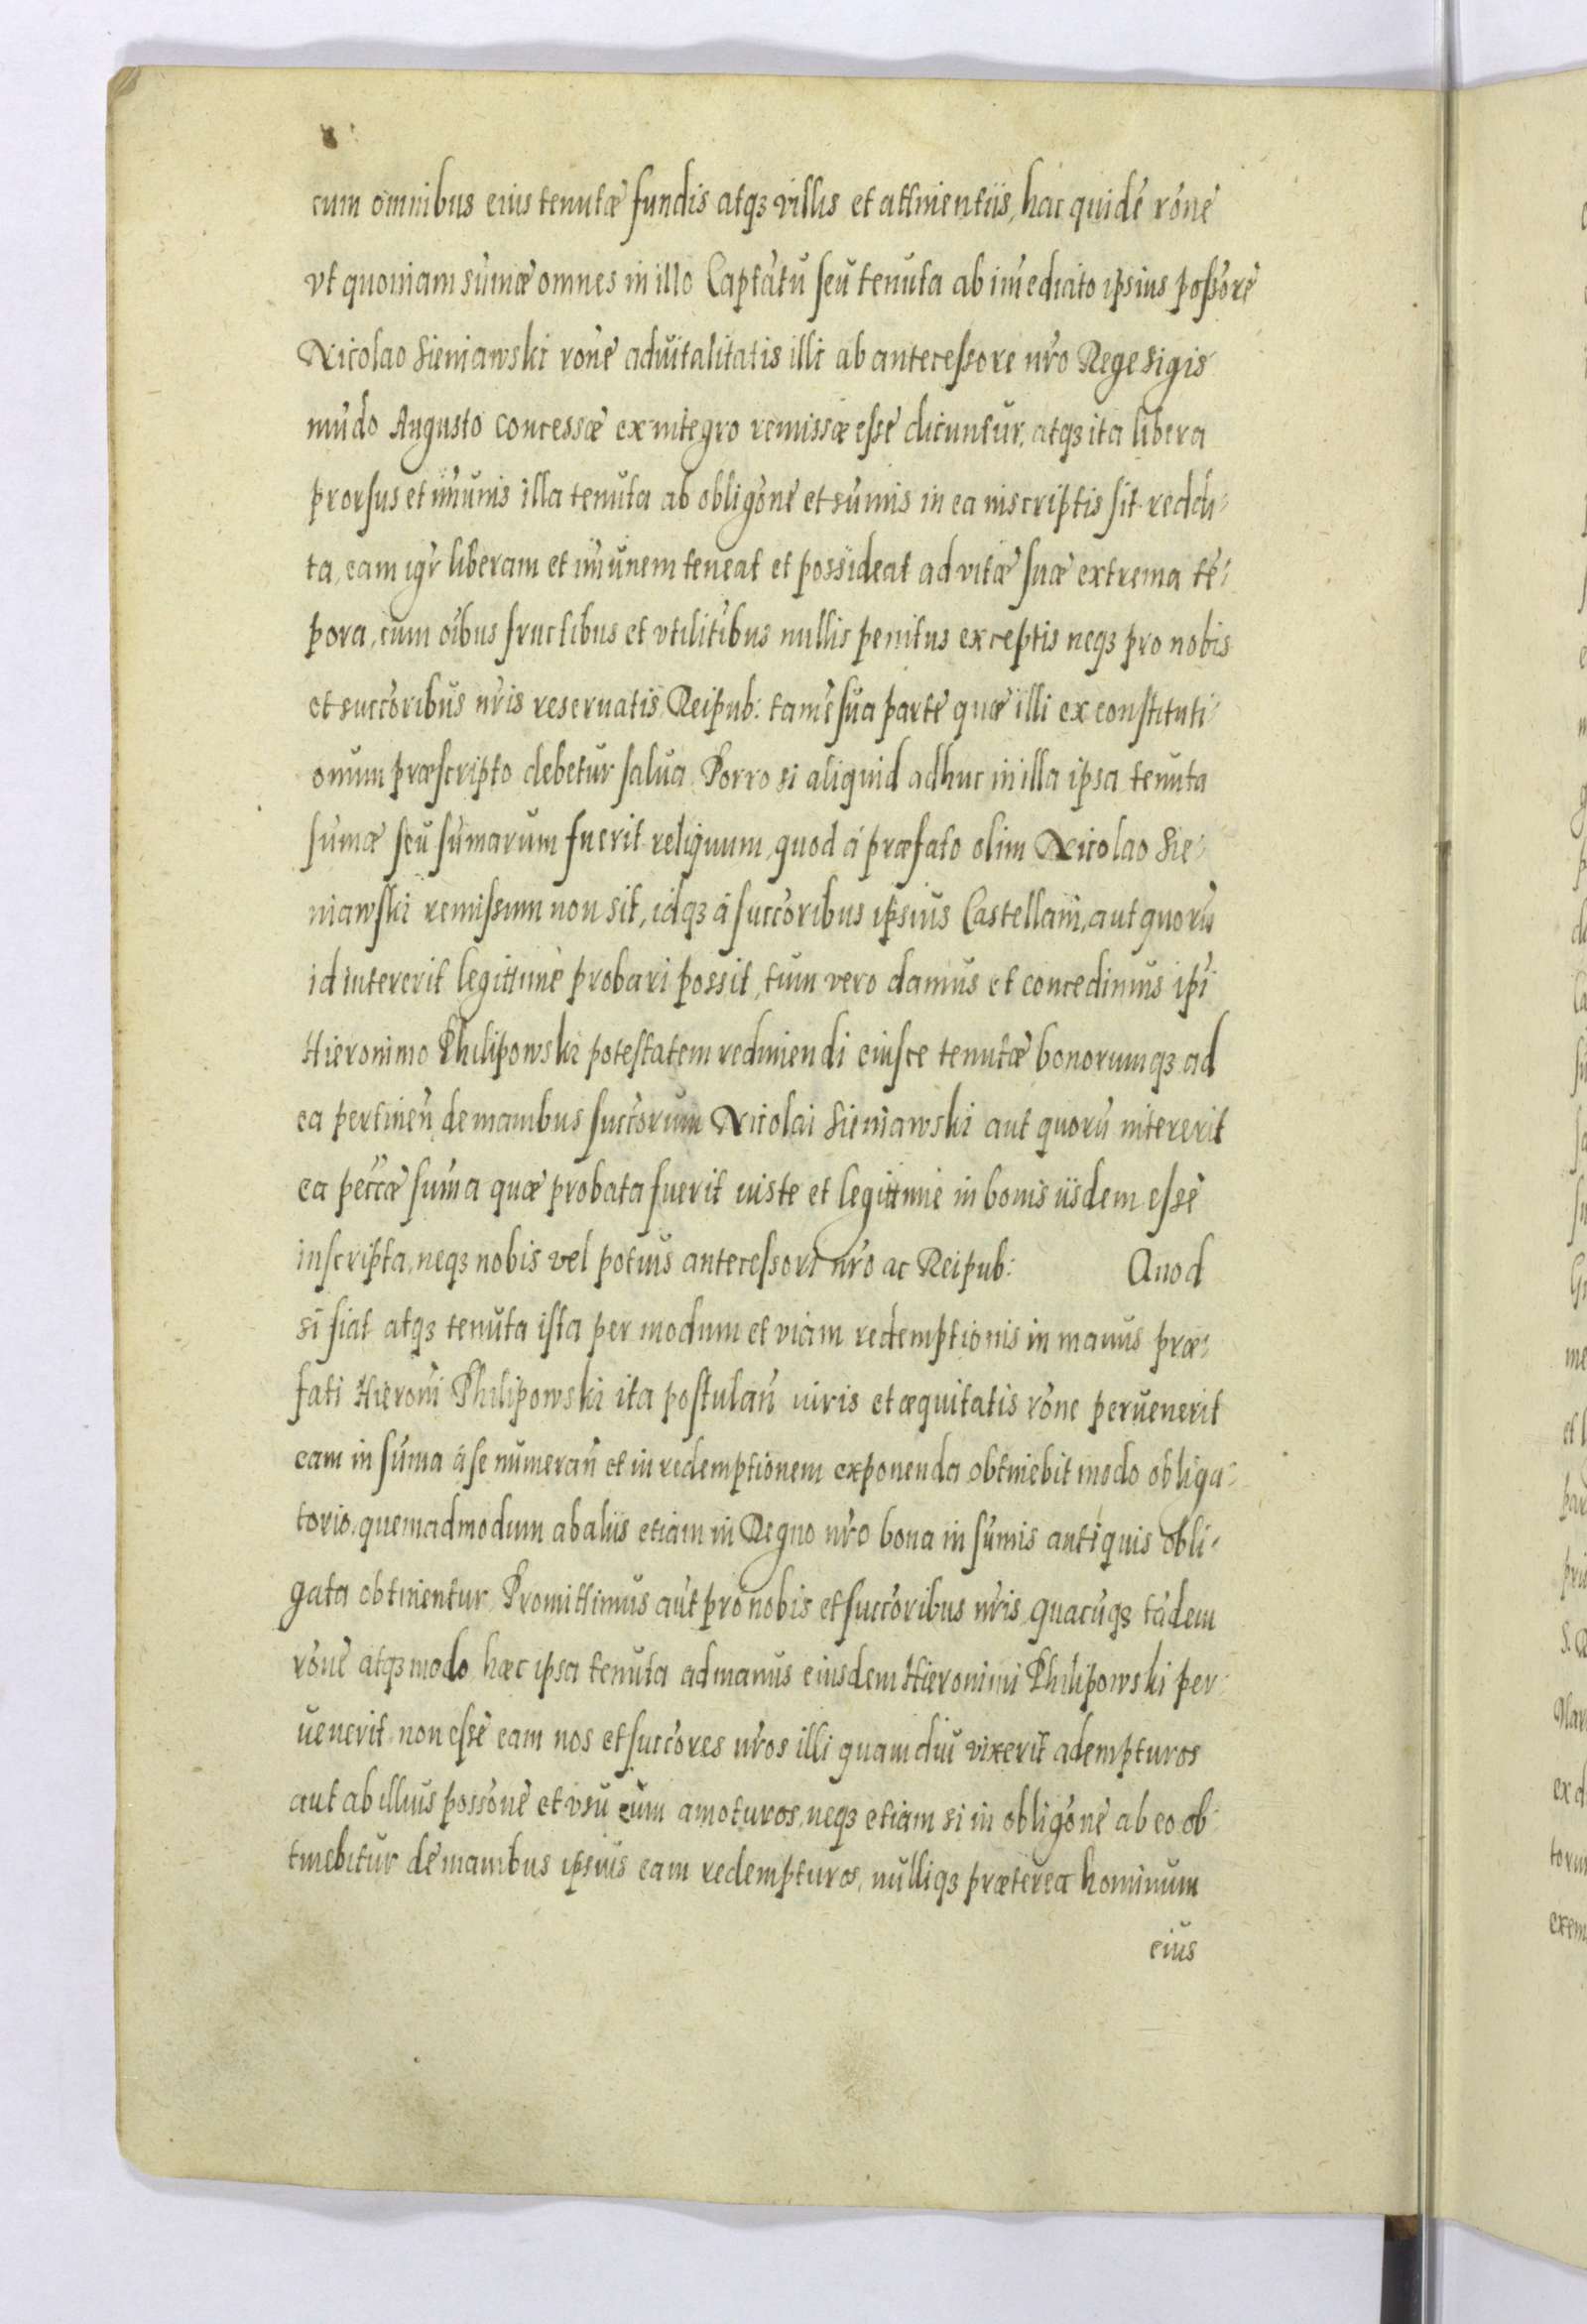 cum omnibus eius tenutæ fundis atqꝫ villis et attinentiis, hac quidē rōne
vt quoniam sūmæ omnes in illo Captātu seu tenuta ab imēdiato ipsius possōre
Nicolao Sieniawski rōne aduitalitatis illi ab antecessore nr̄o Rege Sigis-
mūdo Augusto concessæ ex integro remissæ esse dicuntur, atqꝫ ita libera
prorsus et īmunis illa tenuta ab obligōne et sūmis in ea inscriptis sit reddi-
ta, eam igr̄ liberam et īmunem teneat et possideat ad vitæ suæ extrema tē-
pora, cum oībus fructibus et vtilitībus nullis penitus exceptis neqꝫ pro nobis
et succōribus nr̄is reseruatis, Reipub: tamē sua parte quæ illi ex constituti-
onum præscripto debetur salua. Porro si aliquid adhuc in illa ipsa tenuta
sūmæ seu sūmarum fuerit reliquum, quod á præfato olim Nicolao Sie-
niawski remissum non sit, idqꝫ á succōribus ipsius Castellani, aut quorū
id intererit legittimè probari possit, tum vero damus et concedimus ipī
Hieronimo Philipowski potestatem redimiendi eiusce tenutæ bonorumqꝫ ad
ea pertinen̄ de manibus succōrum Nicolai Sieniawski aut quorū intererit
ea peccæ sūma quæ probata fuerit iuste et legittime in bonis iisdem esse
inscripta, neqꝫ nobis vel potius antecessori nr̄o ac Reipub: Quod
si fiat atqꝫ tenuta ista per modum et viam redemptionis in manus præ-
fati Hieroni Philipowski ita postulan̄ iuris et æquitatis rōne peruenerit
eam in sūma á se numeran̄ et in redemptionem exponenda obtinebit modo obliga-
torio, quemadmodum ab aliis etiam in Regno nr̄o bona in sūmis antiquis obli-
gata obtinentur. Promittimus aūt pro nobis et succōribus nr̄is quacūqꝫ tādem
rōne atqꝫ modo hæc ipsa tenuta ad manus eiusdem Hieronimi Philipowski per-
uenerit non esse eam nos et succōres nr̄os illi quamdiu vixerit adempturos
aut ab illius possōne et vsu eum amoturos, neqꝫ etiam si in obligōne ab eo ob-
tinebitur de manibus ipsius eam redempturos, nulliqꝫ præterea hominum
eius